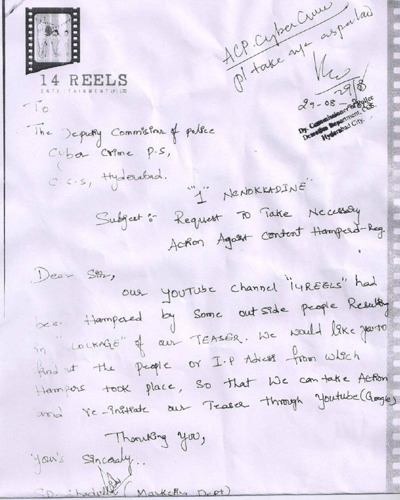 14 REELS
ENTERTAINMENT
ACP. Cyber Crime
pl take n/a as per law
29/8
29-08-
Dy. Commissioner of Police
Detective Department,
Hyderabad City.
To
The Deputy Commisine of police
Cyber Crime P.S,
C.C.S, Hyderabad.
"1" NENOKKADINE"
Subject:- Request To Take Necessary
Action Against content Hampered-Reg.
Dear Sir,
our YOUTUBE channel "14REELS" had
been Hampered by Some out side people Resulting
in "LOCKAGE" of our TEASER. We would like you to
find ut the people or I.P Adress from which
Hampers took place, So that We can take Action
and re-initiate our Teaser through Youtube (Google)
Thanking You,
Your's Sincerely...
(Marketing Dept)